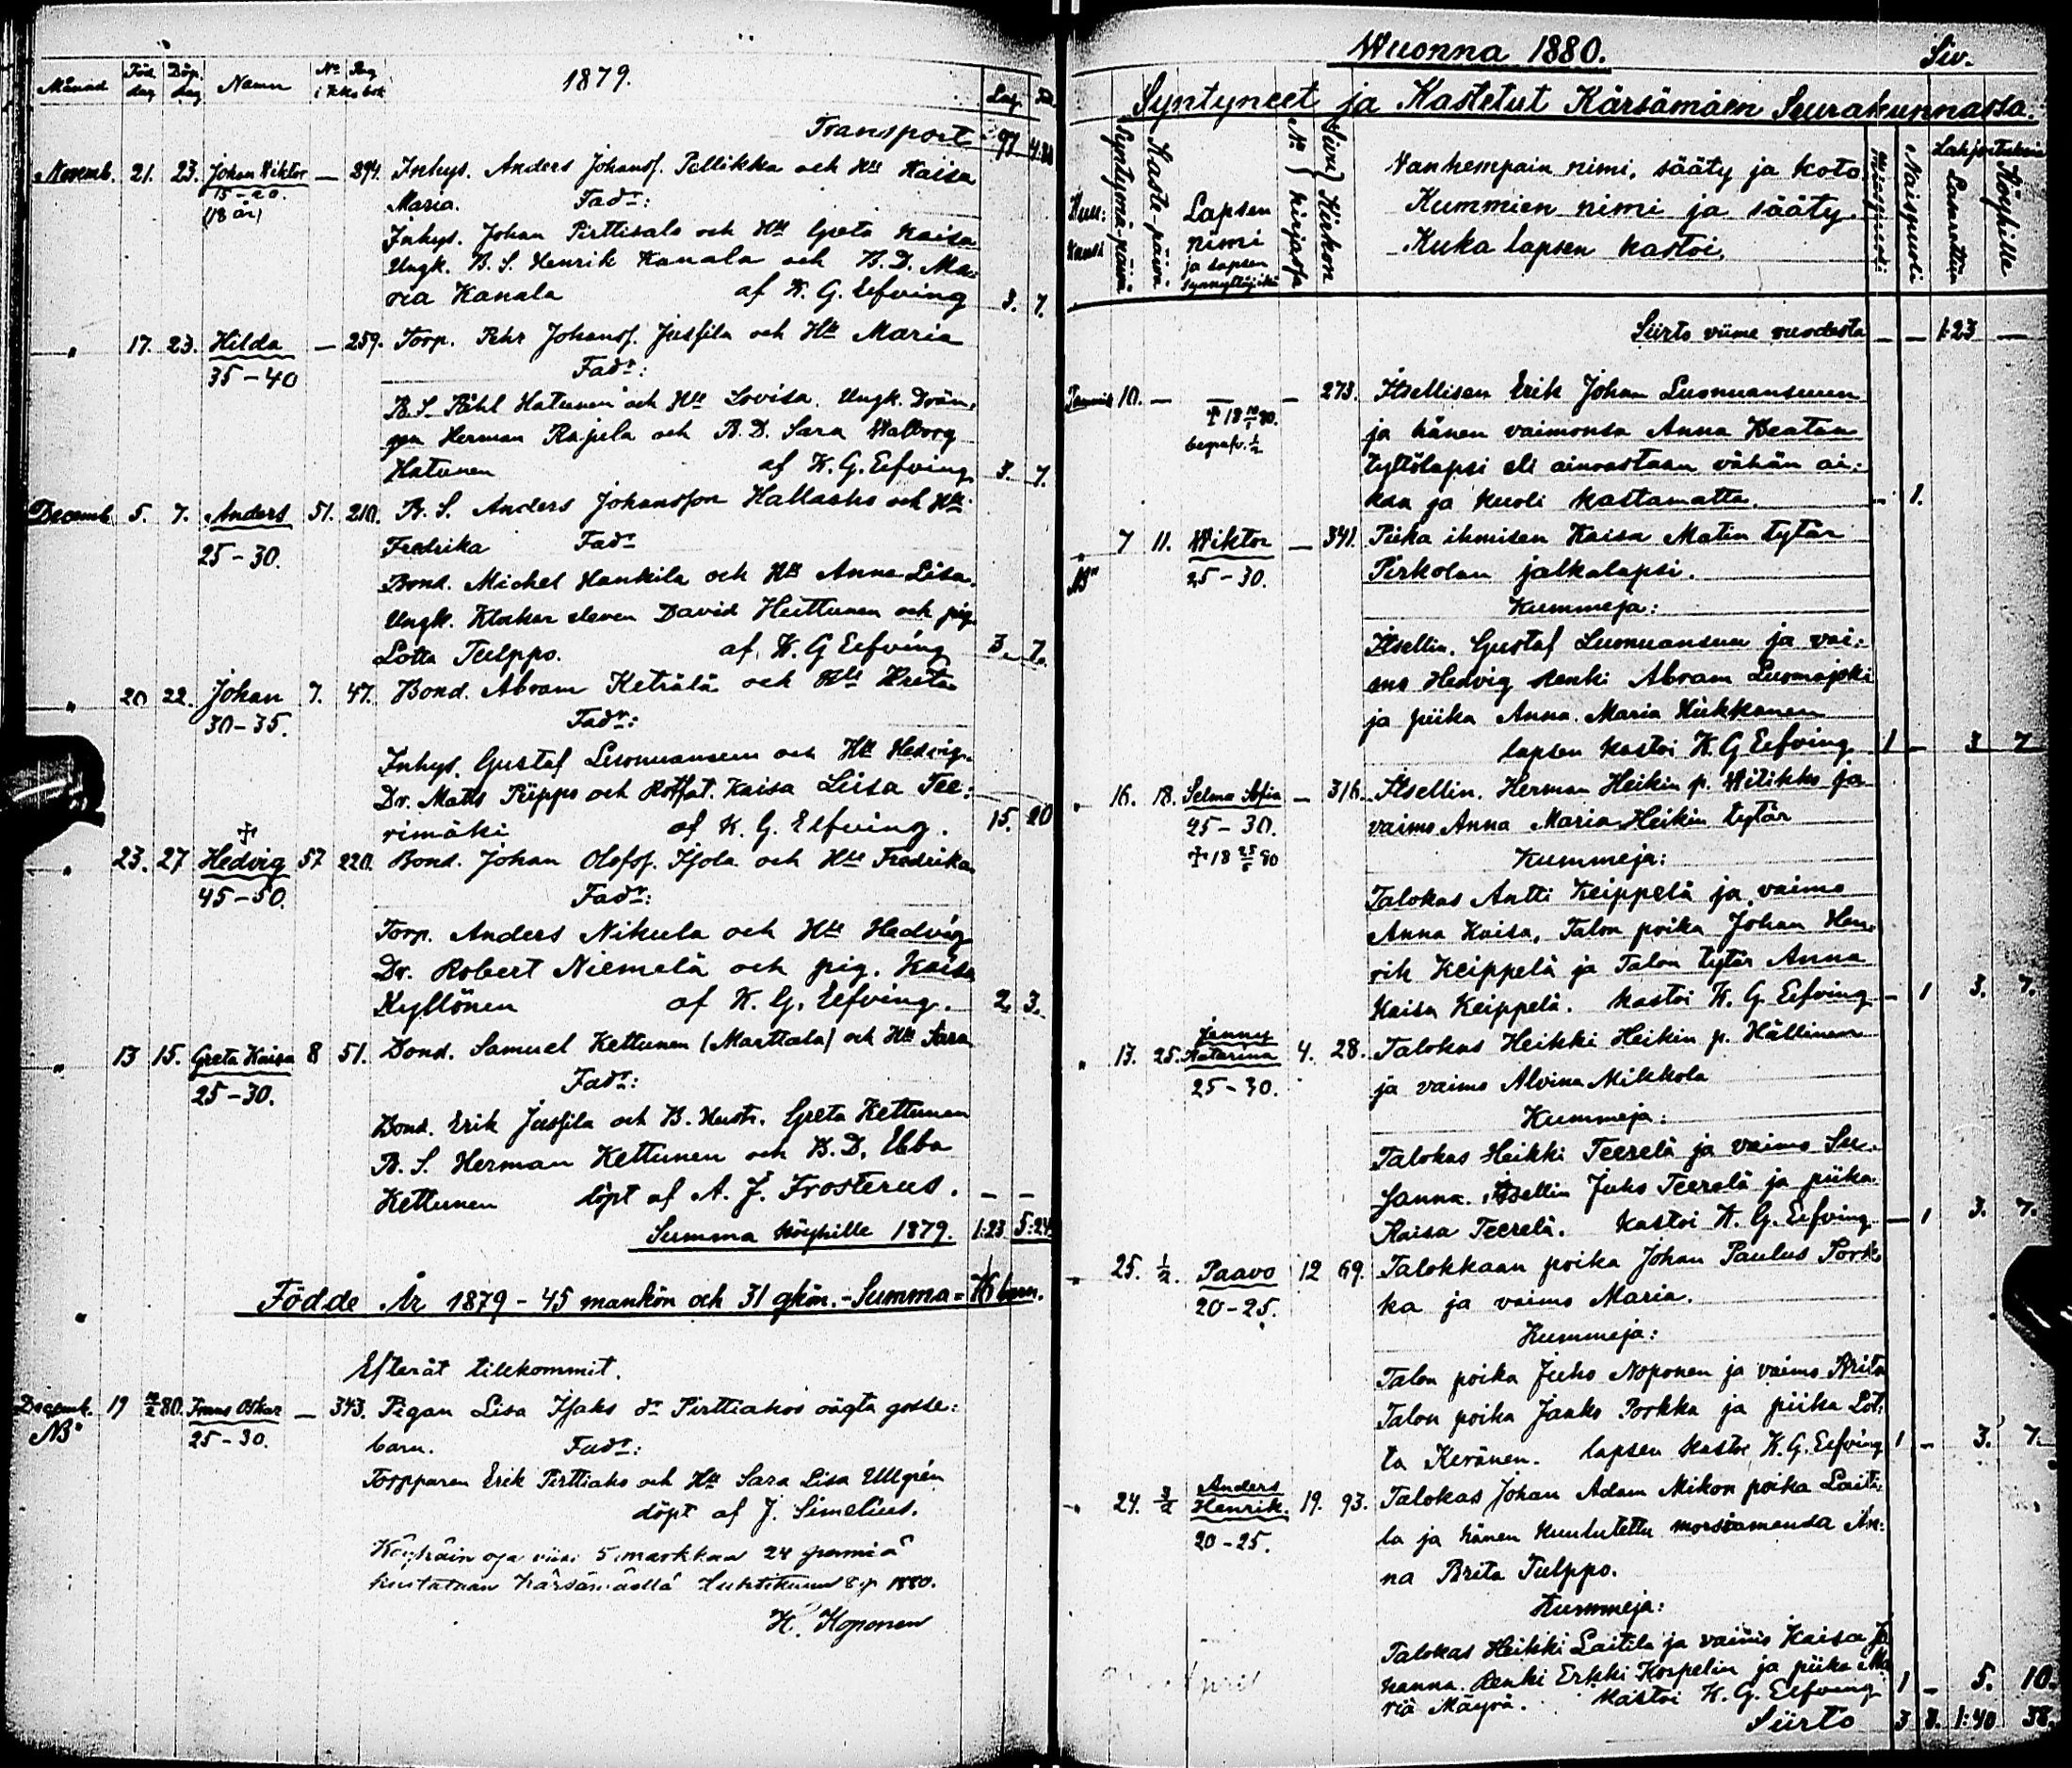 1879.
Månad Föd. dag Döp. dag Namn No Pag. i Kko bok Lag.
Transport 97 4:80
Novemb. 21. 23. Johan Wiktor — 294. Inhys. Anders Johansf. Pellikka och Hu Kaisa
15-20. Maria. Fadr:
(18 år)
Inhys. Johan Pirttisalo och Hu Greta Kaisa
Ungk. B. S. Henrik Kanala och B. D. Ma-
ria Kanala af K. G. Eefving 3. 7.
" 17. 23. Hilda — 259. Torp. Pehr Johansf. Jussila och Hu Maria
35-40 Fadr:
B. S. Påhl Hatunen och Hu Lovisa. Ungk. Drän-
gen Herman Rajula och B. D. Sara Walborg
Hatunen af K. G. Eefving 3. 7.
Decemb. 5. 7. Anders 51. 210. B. S. Anders Johansson Hallaaho och Hu
25-30. Fredrika Fadr
Bond. Michel Hankila och Hu Anna Lisa.
Ungk. Klockar eleven David Huttunen och pig.
Lotta Tulppo. af K. G Eefving 3. 7.
" 20 22. Johan 7. 47. Bond. Abram Keträlä och Hu Kreta
30-35. Fadr:
Inhys. Gustaf Luomansuu och Hu Hedvig.
Dr. Matts Piippo och Rotfat. Kaisa Liisa Tee-
rimäki af K. G. Eefving. 15. 20
" 23. 27 Hedvig 57 220. Bond. Johan Olofsf. Isola och Hu Fredrika
45-50. Fadr:
Torp. Anders Nikula och Hu Hedvig
Dr. Robert Niemelä och pig. Kaisa
Kyllönen af K. G. Eefving. 2. 3.
" 13 15. Greta Kaisa 8 51. Bond. Samuel Kettunen (Marttala) och Hu Sara
25-30. Fadr:
Bond. Erik Jussila och B. Hustr. Greta Kettunen
B. S. Herman Kettunen och B. D. Ebba
Kettunen döpt af A. J. Frosterus. — —
Summa Köyhille 1879. 1:23 5:24
Födde År 1879 - 45 mankön och 31 qkön. - Summa = 76 barn.
Efteråt tillkommit.
Decemb. 19 80. Frans Oskar — 343. Pigan Lisa Isaks dr Pirttiahos oägta gosse-
NB 25-30. barn. Fadr:
Torpparen Erik Pirttiaho och Hu Sara Lisa Ullgrén
döpt af J. Simelius.
Köyhäin osa viisi 5 markkaa 24 penniä
kuitataan Kärsämäellä Huhtikuun 8 p 1880.
H. Koponen
Wuonna 1880. Siv.
Syntyneet ja Kastetut Kärsämäen Seurakunnassa.
Kuu-kausi Syntymä-päivä. Kaste-päivä. Lapsen nimi ja lapsen synnyttäjä ikä No Sivu Kirkon kirjassa
Vanhempain nimi, sääty ja koto
Kummien nimi ja sääty.
Kuka lapsen kastoi.
Miespuoli Naispuoli Lahjoituksia Lasarettiin Köyhille
Siirto viime vuodesta — — 1:23 —
Tammik 10. — — — 273. Itsellisen Erik Johan Luomansuun
† 18 10/1 80. ja hänen vaimonsa Anna Beatan
begrafv. 1/2 tyttölapsi eli ainoastaan vähän ai-
kaa ja kuoli kastamatta. - 1.
" 7 11. Wiktor — 341. Piika ihmisen Kaisa Matin tytär
NB 25-30. Pirkolan jalkalapsi.
Kummeja:
Itsellin. Gustaf Luomansuu ja vai-
mo Hedvig Renki Abram Luomajoki
ja piika Anna Maria Hiekkanen
lapsen kastoi K. G Eefving 1 - 3 7
" 16. 18. Selma Sofia — 316. Itsellin. Herman Heikin p. Wilikko ja
25-30. vaimo Anna Maria Heikin tytär
† 18 25/5 80 Kummeja:
Talokas Antti Keippelä ja vaimo
Anna Kaisa, Talon poika Johan Hen-
rik Keippelä ja Talon tytär Anna
Kaisa Keippelä. kastoi K. G. Eefving - 1 3. 7.
" 13. 25. Jenny Katarina 4. 28. Talokas Heikki Heikin p. Hällinen
25-30. ja vaimo Alvina Mikkola
Kummeja:
Talokas Heikki Teerelä ja vaimo Su-
sanna. Itsellin Juho Teerelä ja piika
Kaisa Teerelä. kastoi K. G. Eefving — 1 3. 7.
" 25. 1/2. Paavo 12 69. Talokkaan poika Johan Paulus Pork-
20-25. ka ja vaimo Maria.
Kummeja:
Talon poika Juho Noponen ja vaimo Brita
Talon poika Jaako Porkka ja piika Lot-
ta Keränen. lapsen kastoi K. G. Eefving 1 - 3. 7.
" 24. 3/2 Anders Henrik. 19. 93. Talokas Johan Adam Mikon poika Laiti-
20-25. la ja hänen kuulutettu morsiamensa An-
na Brita Tulppo.
Kummeja:
Talokas Heikki Laitila ja vaimo Kaisa Jo
hanna. Renki Erkki Korpelin ja piika Ma
ria Mäyrä. kastoi K. G. Eefving 1 - 5. 10.
Siirto 3 3. 1:40 38.